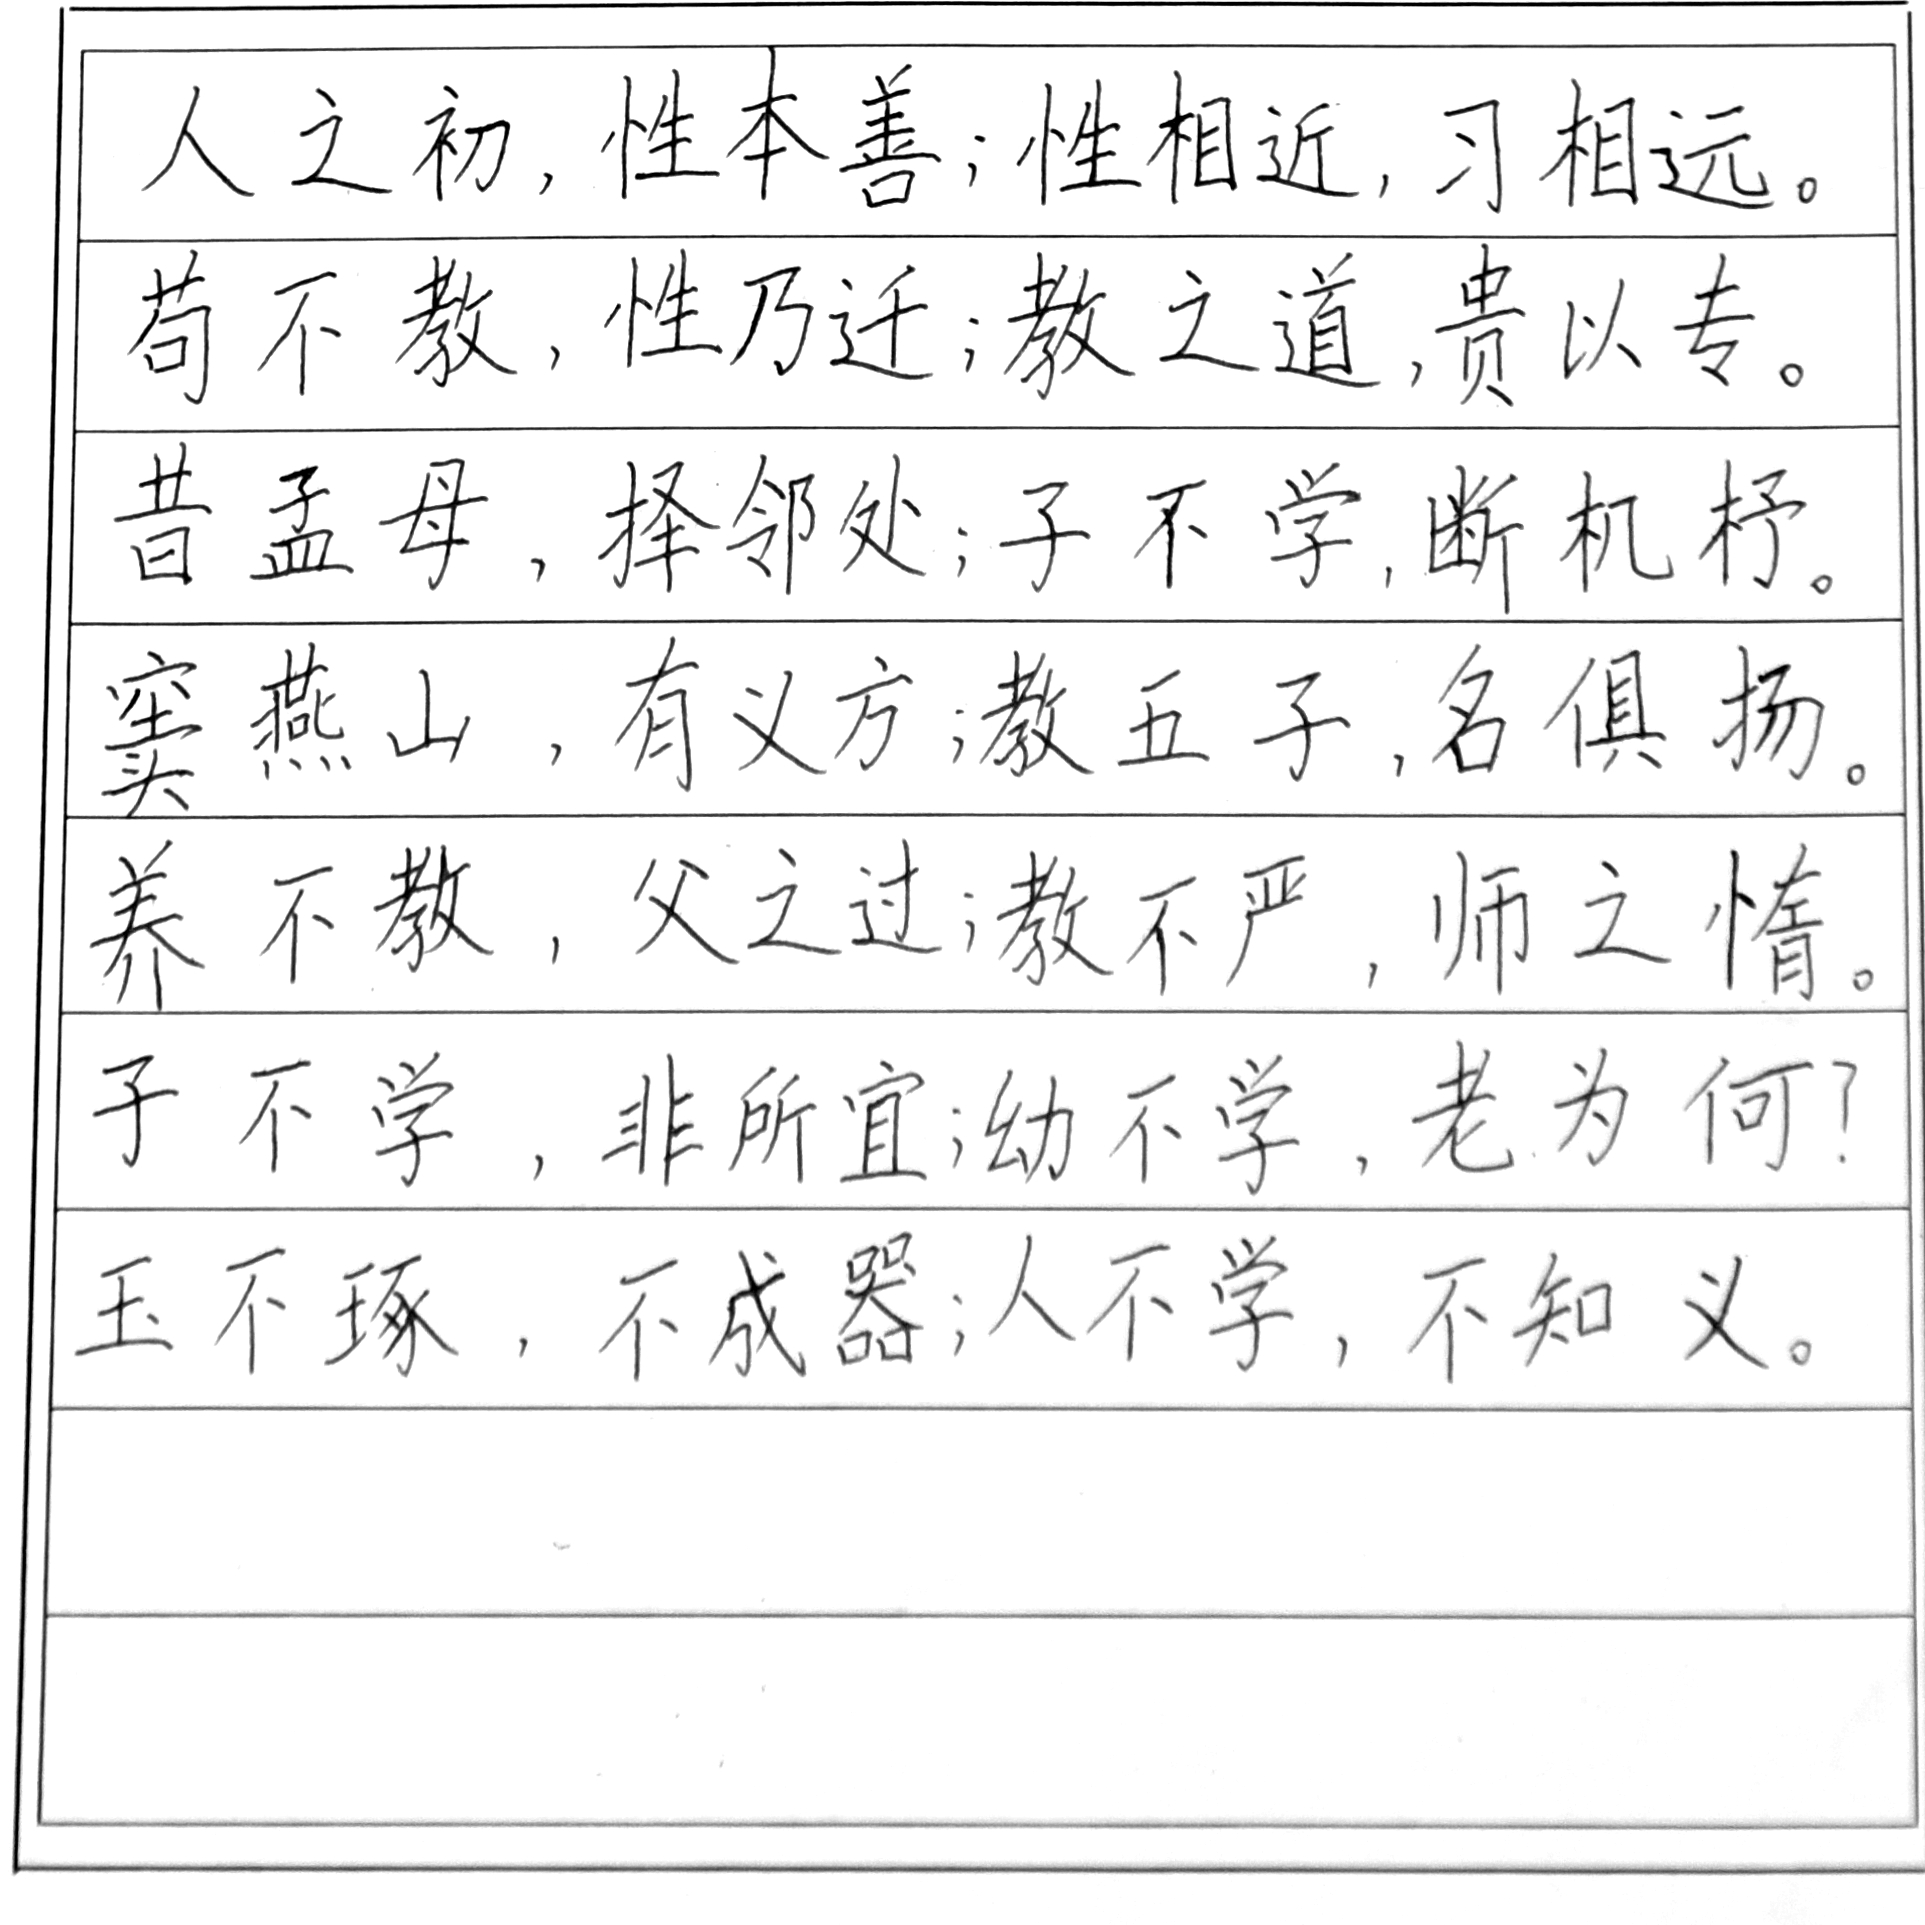 人之初，性本善；性相近，习相远。
苟不教，性乃迁；教之道，贵以专。
昔孟母，择邻处；子不学，断机杼。
窦燕山，有义方；教五子，名俱扬。
养不教，父之过；教不严，师之惰。
子不学，非所宜；幼不学，老为何？
玉不琢，不成器；人不学，不知义。